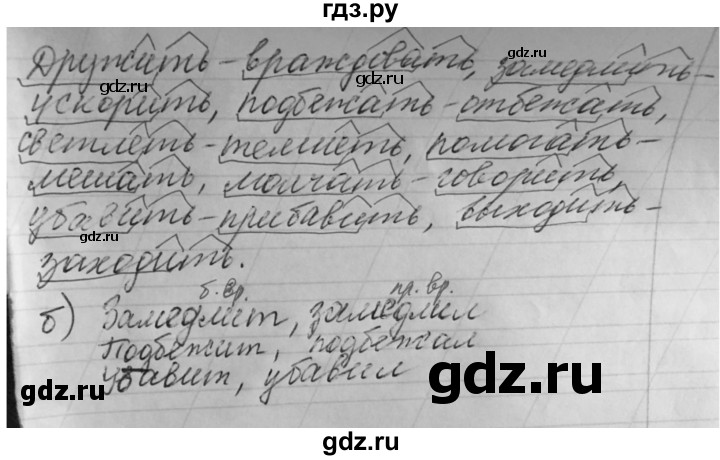 гдз.ру
Дружить - враждовать, замедлить -
ускорить, подбежать - отбежать,
светлеть - темнеть, помогать -
мешать, молчать - говорить,
убавить - прибавить, выходить -
заходить.
б. вр. пр. вр.
б) Замедлит, замедлил
Подбежит, подбежал
Убавит, убавил
gdz.ru
gdz.ru
gdz.ru
gdz.ru
gdz.ru
gdz.ru
gdz.ru
gdz.ru
gdz.ru
gdz.ru